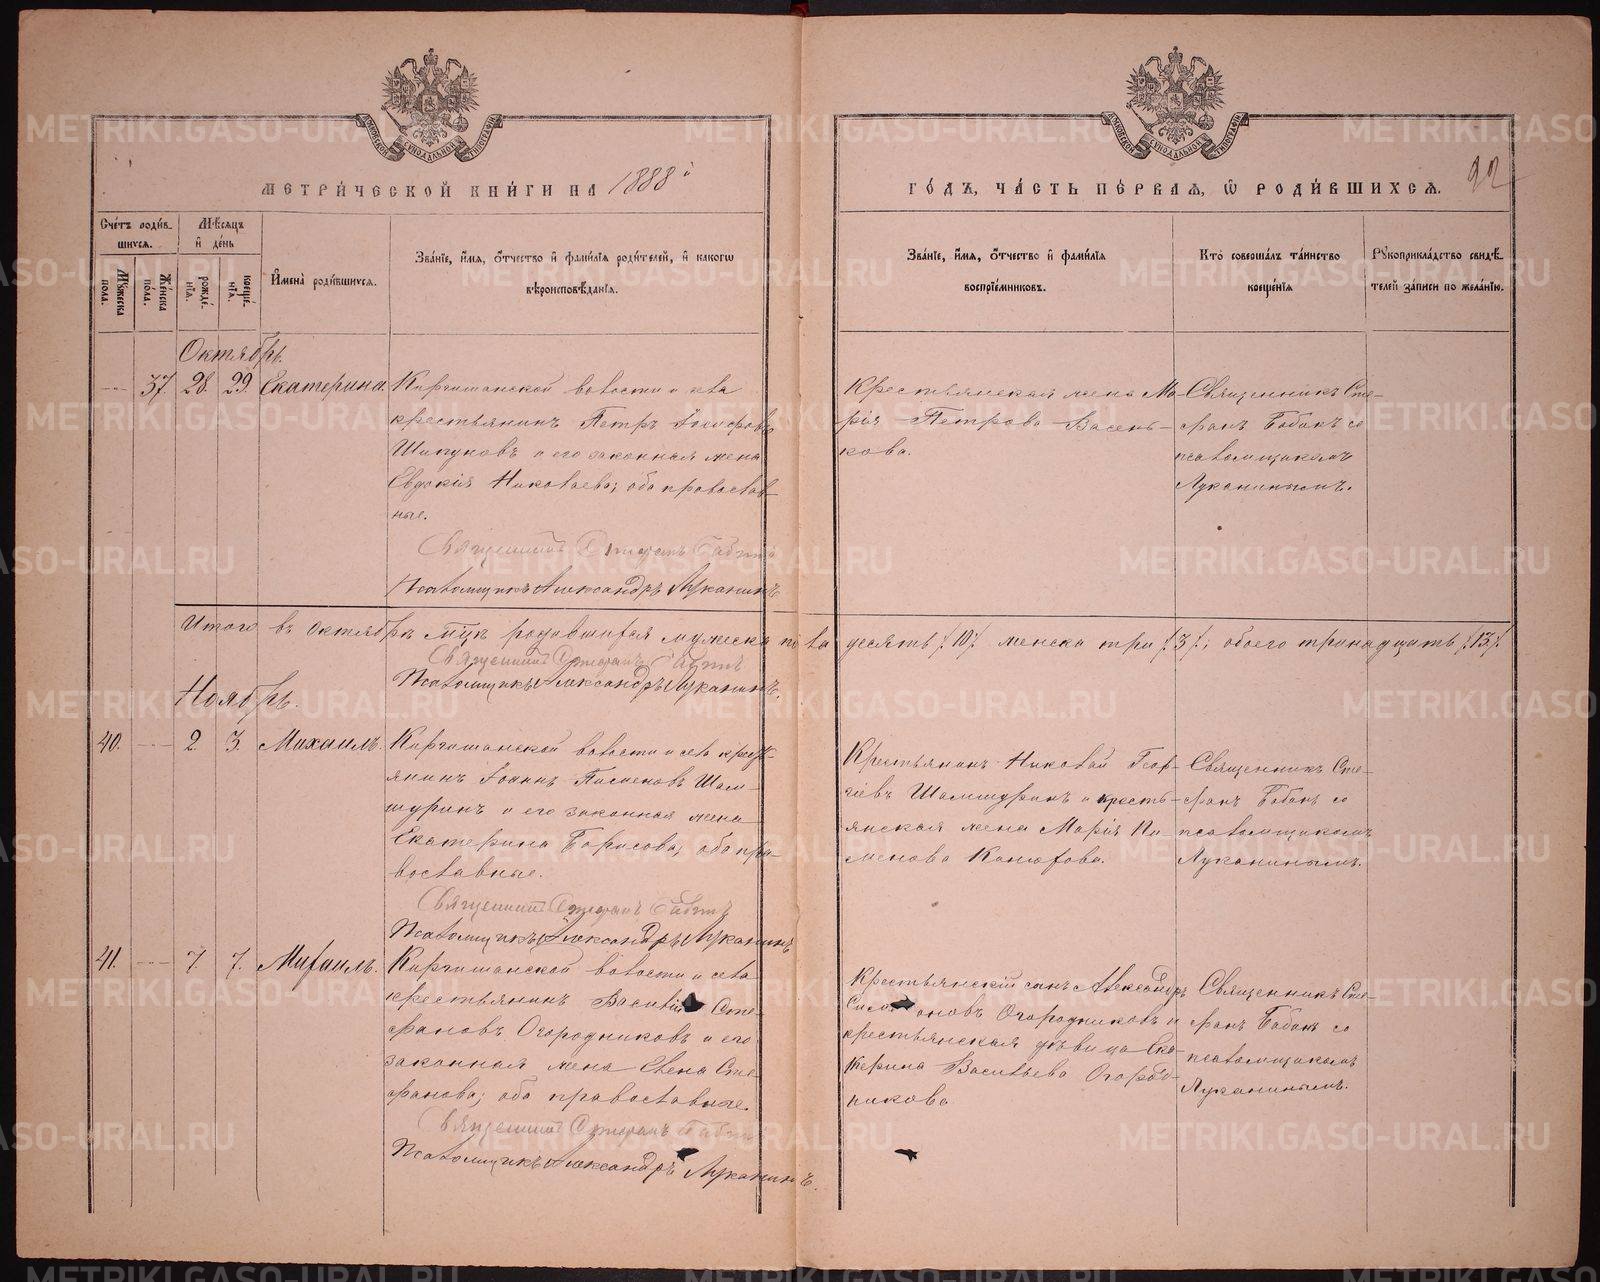 МЕТРИ́ЧЕСКОЙ КНИ́ГИ НА 1888й
ГО́ДЪ, ЧА́СТЬ ПЕ́РВАЯ, Ѿ РОДИ́ВШИХСѦ. 92
Сче́тъ роди́в-
шихсѧ.
Мꙋжеска
по́ла.
Же́нска
по́ла.
Мѣ́сѧцъ
и҆ де́нь
рожде́-
нїѧ.
креще́-
нїѧ.
И҆мена̀ роди́вшихсѧ.
Зва́нїе, и҆́мѧ, ѻ҆́тчество и҆ фами́лїѧ роди́телей, и҆ како́гѡ
вѣроисповѣ́данїѧ.
Зва́нїе, и҆́мѧ, ѻ҆́тчество и҆ фами́лїѧ
воспрїе́мниковъ.
Кто̀ соверша́лъ та́инство
креще́нїѧ
Рꙋкоприкла́дство свидѣ́-
телей за́писи по жела́нїю.
Октябрь.
37. 28. 29. Екатерина
Киргишанской волости и села
крестьянинъ Петръ
Шипуновъ и его законная жена
Евдокія Николаева; оба православ-
ные.
Священникъ Стефанъ Бабинъ
Псаломщикъ Александръ Луканинъ
Крестьянская жена Ма-
рія Петрова Васень-
кова.
Священникъ Сте-
фанъ Бабинъ со
псаломщикомъ
Луканинымъ.
Итого въ октябрѣ мцѣ родившихся мужеска пола десять /10/ женска три /3/; обоего тринадцать /13/.
Священникъ Стефанъ Бабинъ
Псаломщикъ Александръ Луканинъ.
Ноябрь.
40. 2. 3. Михаилъ.
Киргишанской волости и села кресть-
янинъ Іоаннъ Пименовъ Шам-
шуринъ и его законная жена
Екатерина Борисова; оба пра-
вославные.
Священникъ Стефанъ Бабинъ
Псаломщикъ Александръ Луканинъ
Крестьянинъ Николай Геор-
гіевъ Шамшуринъ и кресть-
янская жена Марія Пи-
менова Канюкова.
Священникъ Сте-
фанъ Бабинъ со
псаломщикомъ
Луканинымъ.
41. 7. 7. Михаилъ.
Киргишанской волости и села
крестьянинъ Василій Сте-
фановъ Огородниковъ и его
законная жена Елена Сте-
фанова; оба православные.
Священникъ Стефанъ Бабинъ
Псаломщикъ Александръ Луканинъ.
Крестьянскій сынъ Александръ
Огородниковъ и
крестьянская дѣвица Ека-
терина Васильева Огород-
никова
Священникъ Сте-
фанъ Бабинъ со
псаломщикомъ
Луканинымъ.
METRIKI.GASO-URAL.RU